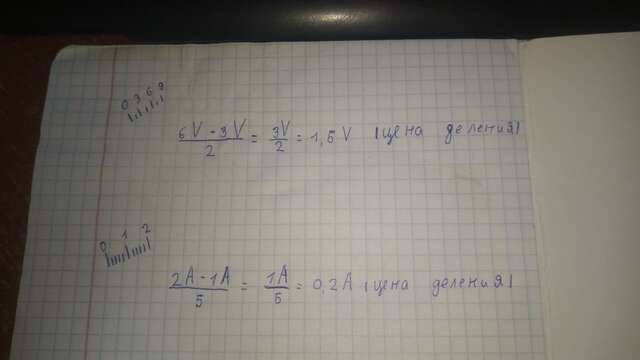 0 3 6 9
6V - 3V / 2 = 3V / 2 = 1,5 V (цена деления)
0 1 2
2A - 1A / 5 = 1A / 5 = 0,2A (цена деления)